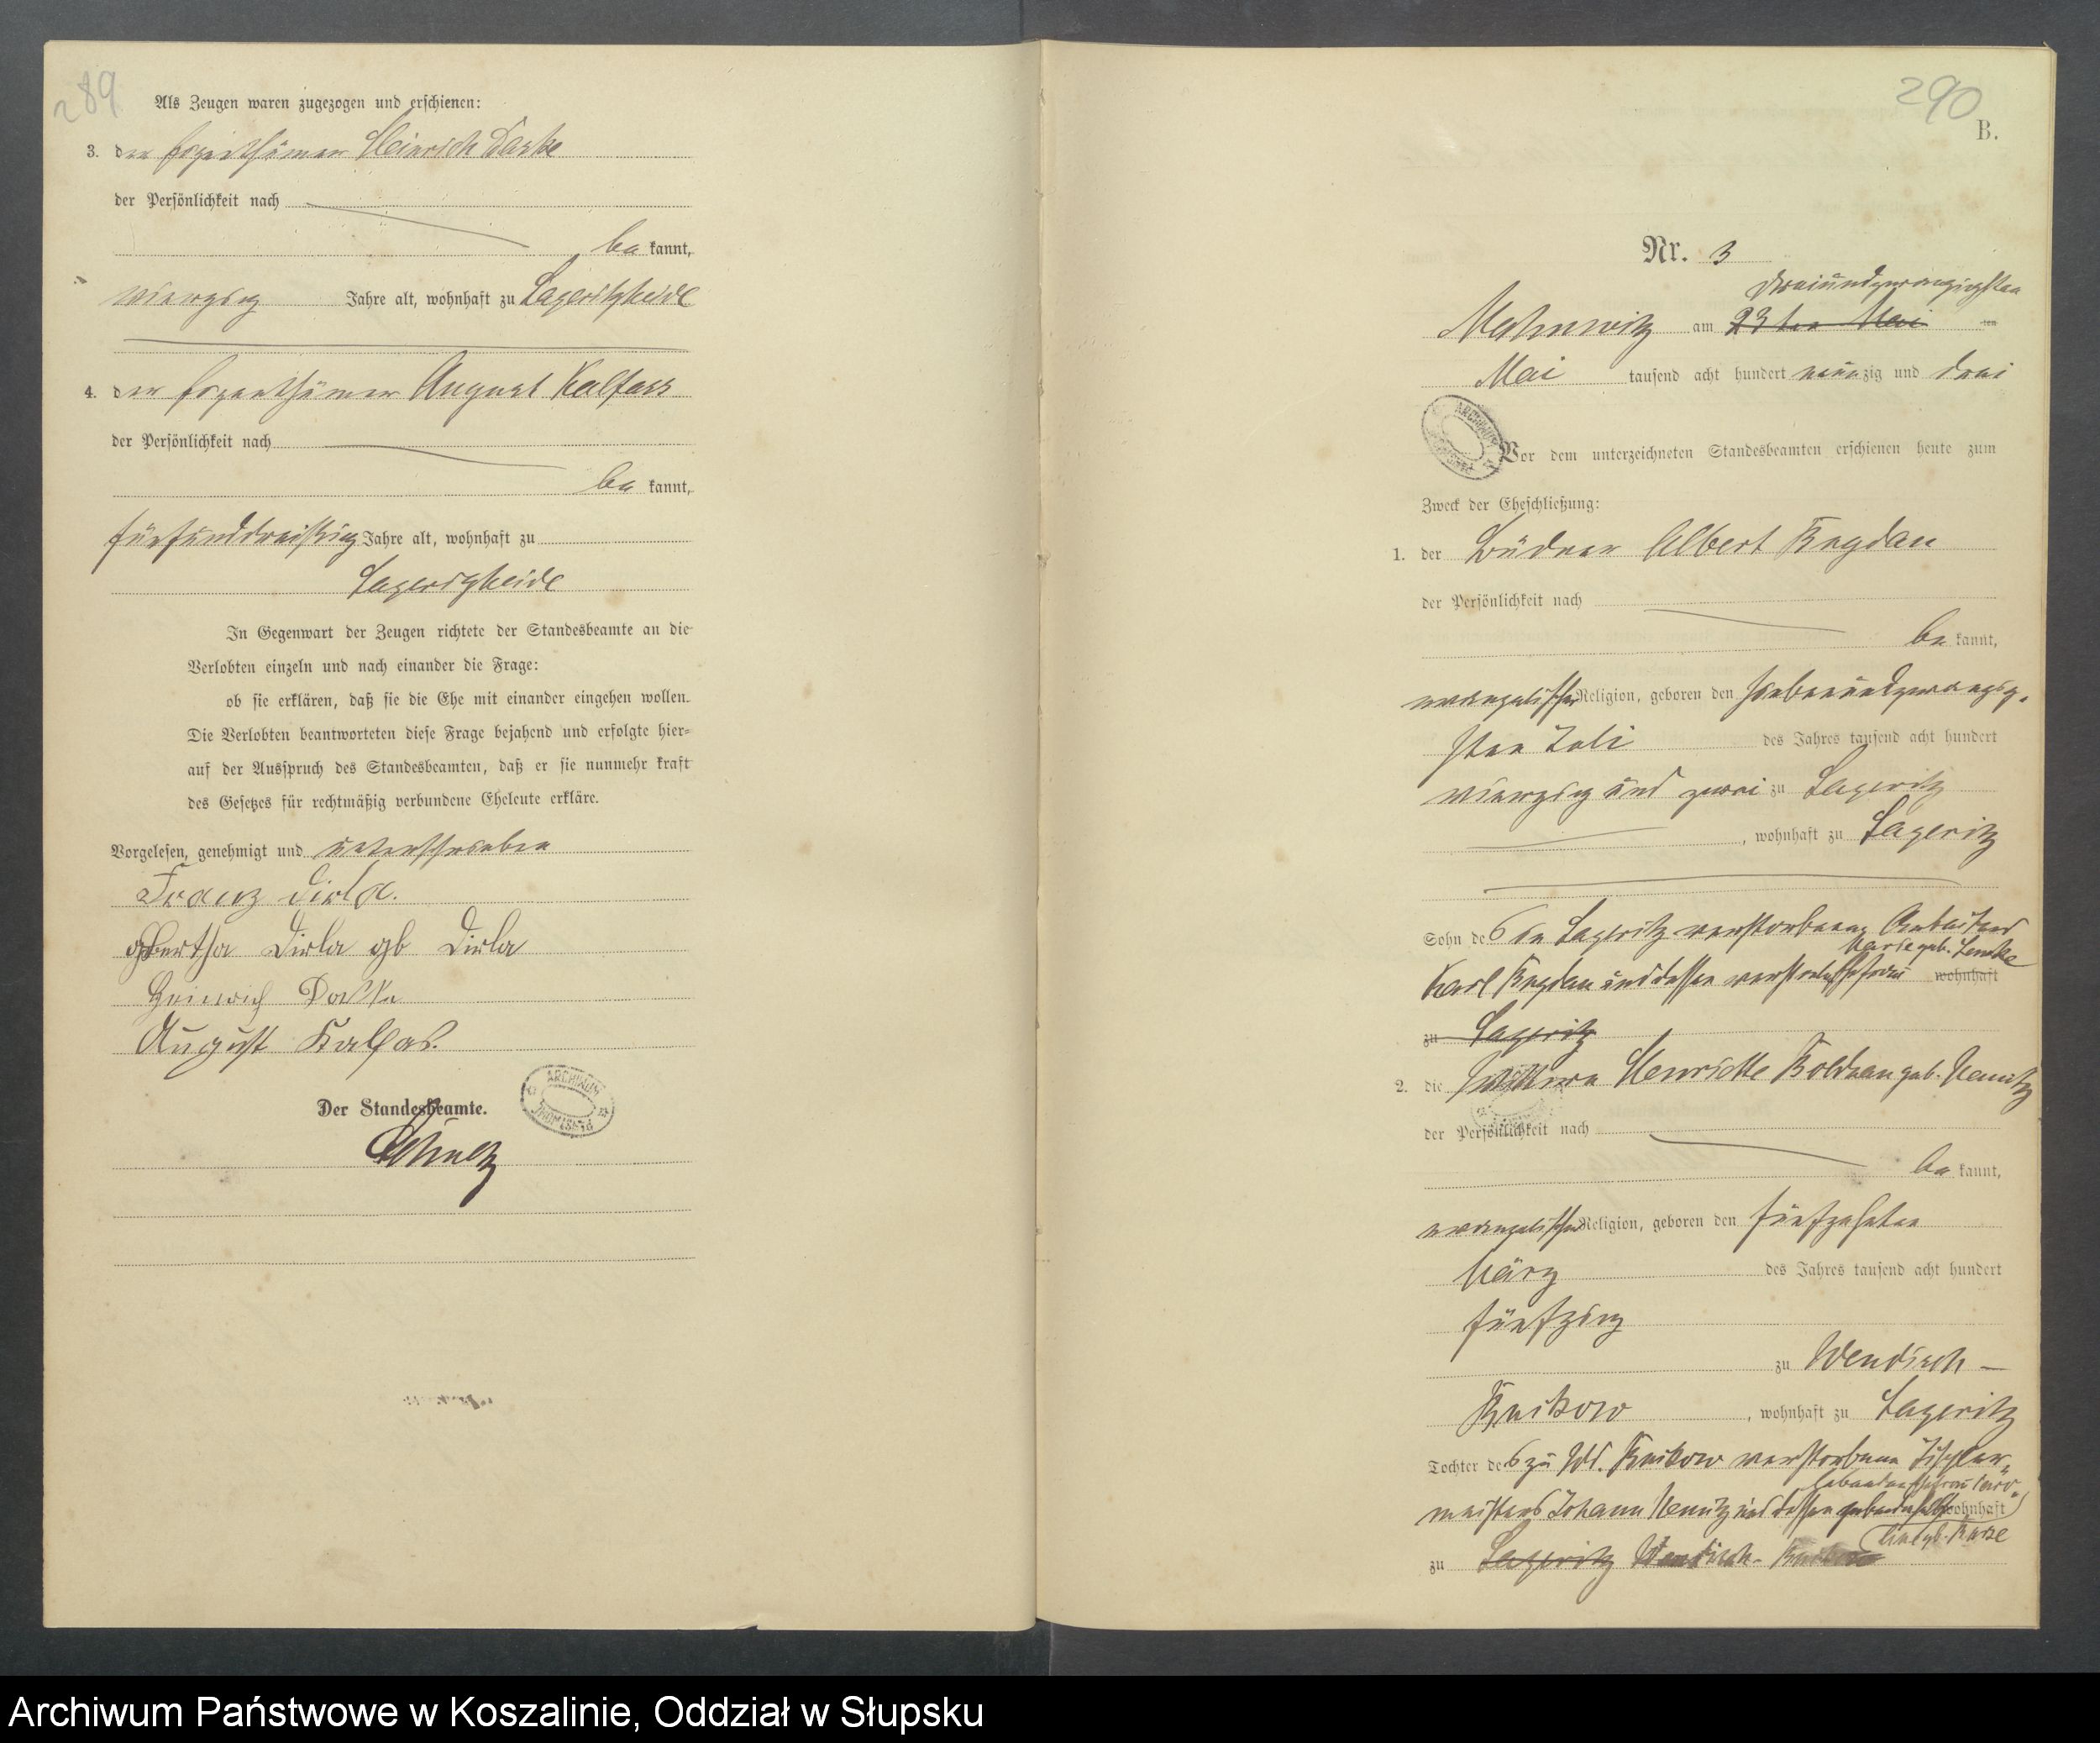 289
Als Zeugen waren zugezogen und erschienen:
3. der Eigenthümer Heinrich Daske
der Persönlichkeit nach
be kannt,
vierzig Jahre alt, wohnhaft zu Lageritzheide
4. der Eigenthümer August Kalfass
der Persönlichkeit nach
be kannt,
fünfunddreißig Jahre alt, wohnhaft zu
Lageritzheide
In Gegenwart der Zeugen richtete der Standesbeamte an die
Verlobten einzeln und nach einander die Frage:
ob sie erklären, daß sie die Ehe mit einander eingehen wollen.
Die Verlobten beantworteten diese Frage bejahend und erfolgte hier-
auf der Ausspruch des Standesbeamten, daß er sie nunmehr kraft
des Gesetzes für rechtmäßig verbundene Eheleute erkläre.
Vorgelesen, genehmigt und unterschrieben
Franz Dirla.
Bertha Dirla gb Dirla
Heinrich Daske
August Kalfas.
Der Standesbeamte.
290
B.
Nr. 3
dreiundzwanzigsten
Mahnwitz am 23ten Mai ten
Mai tausend acht hundert neunzig und drei
Vor dem unterzeichneten Standesbeamten erschienen heute zum
Zweck der Eheschließung:
1. der Büdner Albert Bogdan
der Persönlichkeit nach
be kannt,
evangelischer Religion, geboren den siebenundzwanzig-
sten Juli des Jahres tausend acht hundert
vierzig und zwei zu Lageritz
, wohnhaft zu Lageritz
Sohn des in Lageritz verstorbenen Arbeiters
Marie geb. Lemke
Karl Bogdan und dessen Ehefrau wohnhaft
zu Lageritz
2. die Wittwe Henriette Boldnan geb. Nemitz
der Persönlichkeit nach
be kannt,
evangelischer Religion, geboren den fünfzehnten
März des Jahres tausend acht hundert
fünfzig
zu Wendisch-
, wohnhaft zu Lageritz
Tochter des zu Wd. verstorbenen Tischler-
meisters Johann Nemitz und dessen wohnhaft
zu Lageritz Wendisch-
Archiwum Państwowe w Koszalinie, Oddział w Słupsku